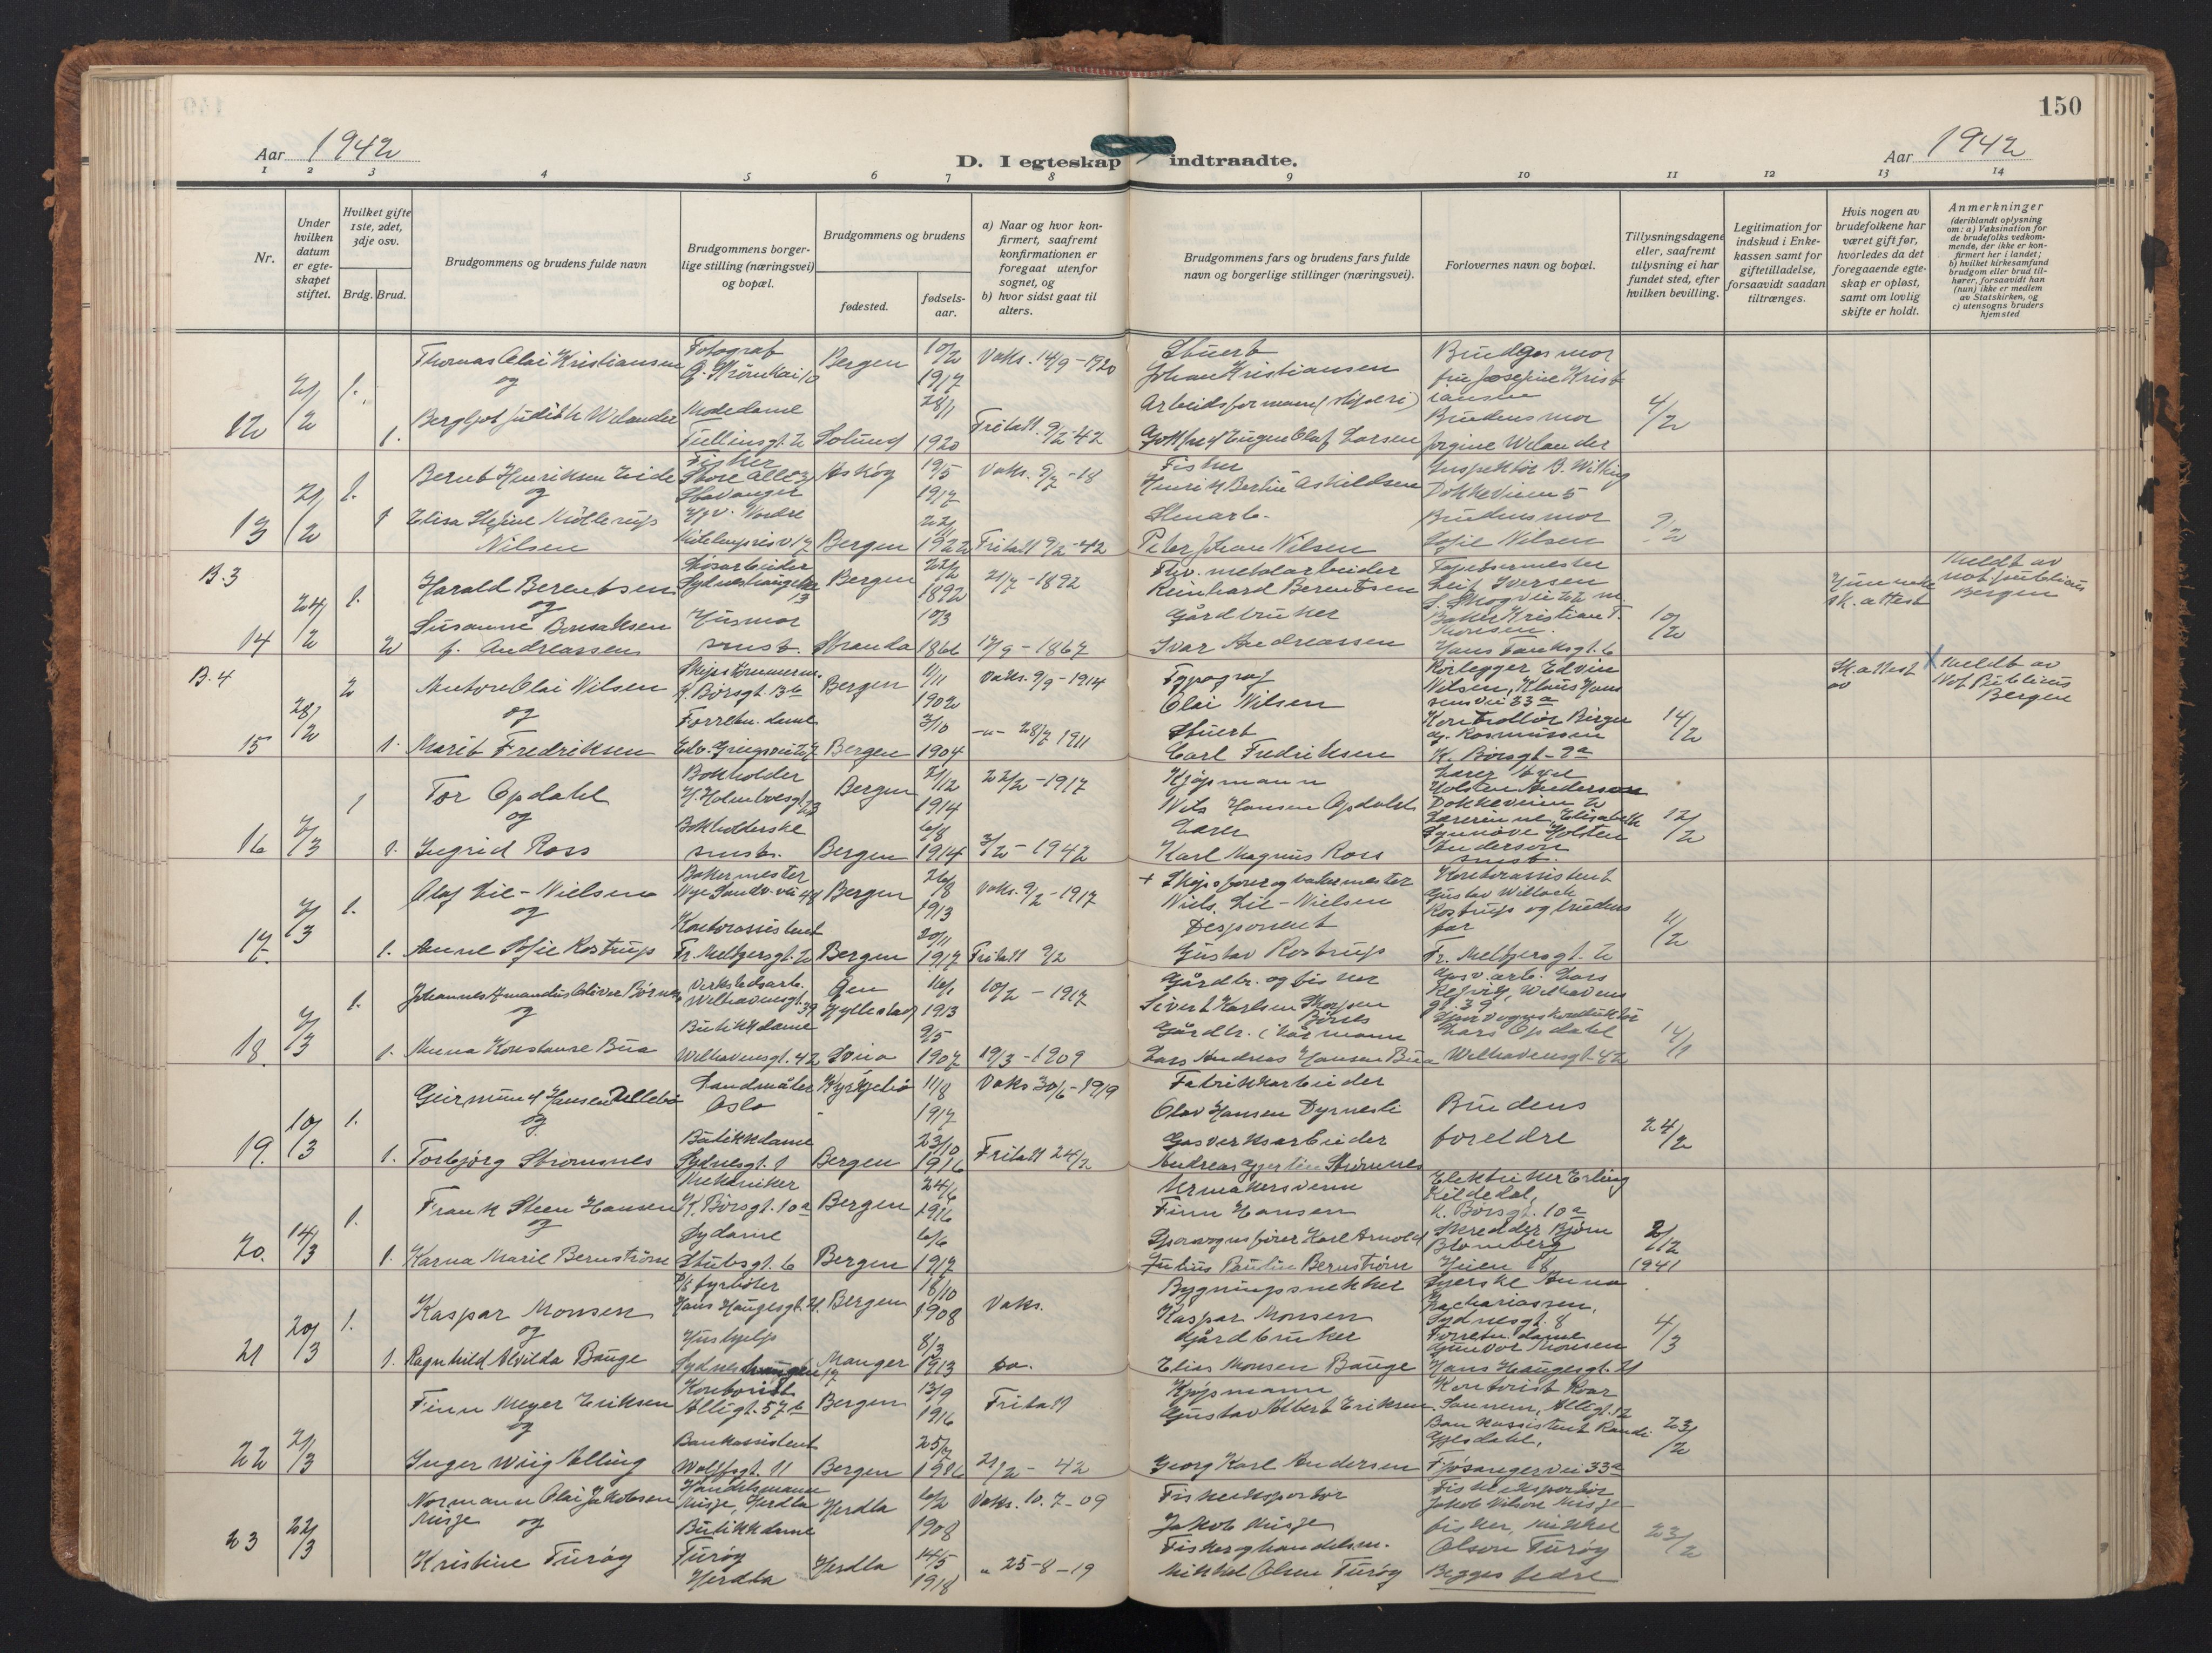 150
Aar 1942
D. I egteskap indtraadte.
Aar 1942
1 2 3 4 5 6 7 8 9 10 11 12 13 14
Nr.
Under hvilken datum er egteskapet stiftet.
Hvilket gifte 1ste, 2det, 3dje osv.
Brdg. Brud.
Brudgommens og brudens fulde navn
Brudgommens borgerlige stilling (næringsvei) og bopæl.
Brudgommens og brudens
fødested.
fødselsaar.
a) Naar og hvor konfirmert, saafremt konfirmationen er foregaat utenfor sognet, og
b) hvor sidst gaat til alters.
Brudgommens fars og brudens fars fulde navn og borgerlige stillinger (næringsvei).
Forlovernes navn og bopæl.
Tillysningsdagene eller, saafremt tillysning ei har fundet sted, efter hvilken bevilling.
Legitimation for indskud i Enkekassen samt for giftetilladelse, forsaavidt saadan tiltrænges.
Hvis nogen av brudefolkene har været gift før, hvorledes da det foregaaende egteskap er opløst, samt om lovlig skifte er holdt.
Anmerkninger
(deriblandt oplysning om: a) Vaksination for de brudefolks vedkommende, der ikke er konfirmert her i landet; b) hvilket kirkesamfund brudgom eller brud tilhører, forsaavidt han (hun) ikke er medlem av Statskirken, og c) utensogns bruders hjemsted
12 2/2 1. Thomas Olai Kristiansen Fotograf Bergen 10/2 1917 Vaks. 14/9-1920 Stuert Johan Kristiansen Brudgs mor fru Josefine Kristiansen
og
1. Bergljot Judith Welander Modedame Tullinsgt. 2 Solund 28/1 1920 Fritatt. 9/2-42 Arbeidsformann Gottfred Eugen Olaf Larsen Brudens mor Jørgine Welander 4/2
13 21/2 1. Bernt Henriksen Eide Fisker Store Alle Stavanger Askøy 19/5 1917 Vaks. 5/7-18 Fisker Henrik Bertin Askildsen Inspektør B. Wiking Dokkeveien 5
og
1 Elisa Sofine Møllerup Nilsen Bergen 1922 Fritatt 9/2-42 Stenarb. Peter Johan Nilsen Brudens mor Sofie Nilsen 9/2
B.3
14 24/2 1. Harald Berentsen Løsarbeider Sydneshaugen 13 Bergen 22/2 1892 21/7-1892 Fhv. metalarbeider Reinhard Berentsen Tapetsermester Leif Iversen
og
2 Susanne Bensaksen f. Andreassen Husmor smst. Stranda 10/3 1866 12/9-1867 Gårdbruker Ivar Andreassen Baker Kristian T. Monsen Hans Tanksgt. 6 10/2
sk. attest
Meldt av not publicus Bergen
B.4
15 28/2 2 Antore Olai Nilsen K. Børsgt. 13b Bergen 11/11 1902 Vaks. 9/9-1914 Typograf Olai Nilsen Rørlegger Edvin Nilsen, Klaus Hanssensvei 33a
og
1. Marit Fredriksen Forretn. dame Edv. Griegsvei 27 Bergen 3/10 1904 -"- 28/7 1911 Stuert Carl Fredriksen Kontrollør Birger Rasmussen K. Børsgt. 9a 14/2
Sk. attest av
X Meldt av Not Publicus Bergen
16 7/3 1 Tor Opdahl Bokholder H. Holmboesgt. 23 Bergen 21/12 1914 22/2-1917 Kjøpmann Nils Hansen Opdahl Lærer Holsten Anderson Dokkeveien 2
og
1. Ingrid Ross Bokholderske smst. Bergen 6/8 1914 3/2-1942 Lærer Karl Magnus Ross Lærerinne Elisabeth Synnøve Holsten Anderson smst. 12/2
17. 7/3 1. Olaf Lie-Nielsen Bakermester Nye Sandv. vei 48 Bergen 26/8 1913 Vaks. 9/2-1917 + Skipsfører og bakermester Niels Lie-Nielsen Kontorassistent Gustav Willoch Rostrup og brudens far
og
1. Anne Sofie Rostrup Kontorassistent Fr. Meltzersgt. 2 Bergen 20/11 1917 Fritatt 9/2 Disponent Gustav Rostrup Fr. Meltzersgt. 2 11/2
18. 7/3 1. Johannes Amandus Oliver Børnes Verkstedsarb. Welhavensgt. 39 Hyllestad 16/1 1913 10/2-1917 Gårdbr. og fisker Sivert Karlsen Børnes Gasv. arb. Lars Welhavensgt. 39
og
1. Anna Konstanse Bua Butikkdame Welhavensgt. 42 9/5 1907 19/3-1909 Gårdbr. Lars Andreas Hansen Bua Lars Opdahl Welhavensgt. 42 14/1
19. 10/3 1. Geirmund Hansen Landmåler Oslo 11/8 1917 Vaks 30/6-1919 Fabrikkarbeider Olav Hansen Dyrnesli Brudens foreldre
og
1. Torbjørg Strømsnes Butikkdame Sydnesgt. 1 Bergen 23/10 1916 Fritatt 24/2 Gasverksarbeider Andreas Strømsnes 24/2
20. 14/3 1. Frank Steen Hansen Mekaniker K. Børsgt. 10a Bergen 24/6 1916 Urmakersvenn Finn Hansen Elektriker Erling Kildedal, K. Børsgt. 10a
og
1. Karna Marie Bernstrøm Sydame Stubsgt. 6 Bergen 6/6 1917 Sporvognsfører Karl Arnold Julius Paulin Bernstrøm Skredder Bjørn Blomberg Heien 18 2/12 1941
21 20/3 1. Kaspar Monsen fyrbøter Hans Haugesgt. 21. Bergen 18/10 1908 Vaks. Bygningssnekker Kaspar Monsen Syerske Anna Zachariassen, Sydnesgt. 8
og
1. Ragnhild Alvilda Bauge Hushjelp Sydneshaugen 17 Manger 8/3 1913 do. Gårdbruker Elias Monsen Bauge Forretn. dame Gunvor Monsen Hans Haugesgt. 21 4/3
22 21/3 Finn Meyer Eriksen Kontorist Allégt. 57b Bergen 13/9 1916 Fritatt Kjøpmann Gustav Albert Eriksen Kontorist Roar Sannem, Allégt. 12
og
Inger Wiig Alling Bankassistent Wolffsgt. 11 Bergen 25/7 1916 21/2-42 Georg Karl Andersen Bankassistent Randi Gjesdahl, Fjøsangervei 33a 23/2
23 22/3 Normann Olai Jakobsen Misje Handelsmann Misje, Herdla Herdla 6/2 1908 Vaks. 10.7-09 Fiskeeksportør Jakob Misje Fiskeeksportør Jakob Nilsen Misje
og
Kristine Turøy Butikkdame Turøy Herdla Herdla 14/5 1918 " 25-8-19 Fisker og handelsm. Mikkel Olsen Turøy fisker, Mikkel Olsen Turøy Begges fedre 23/2